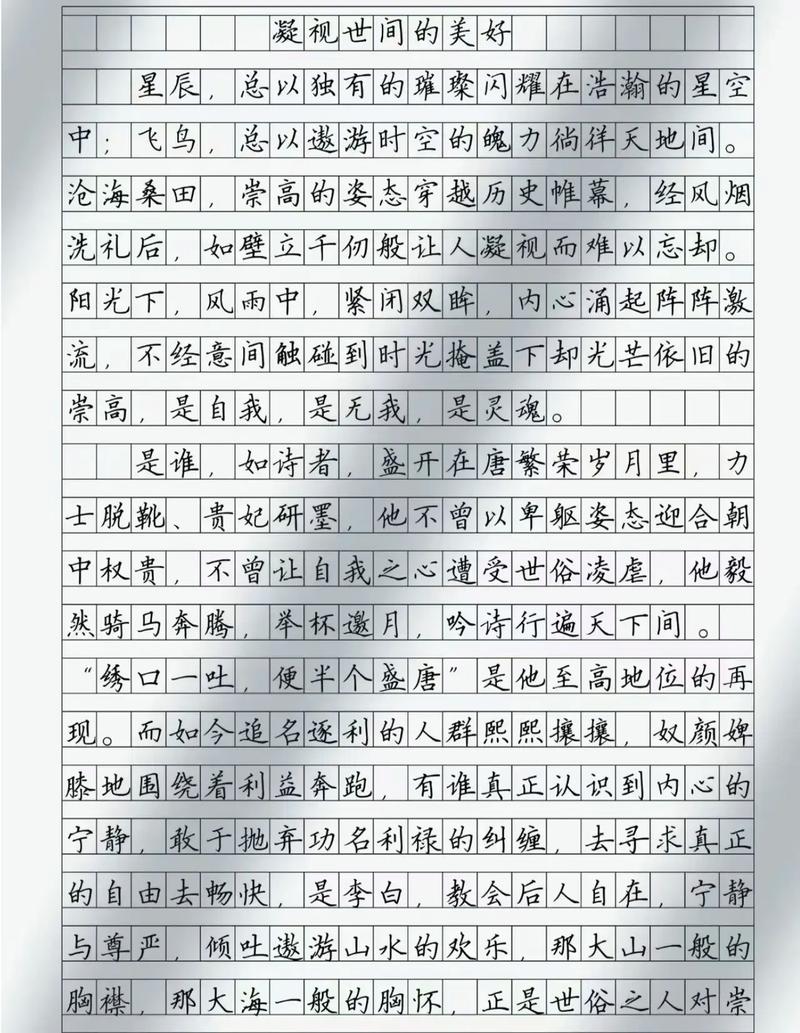 凝视世间的美好
星辰，总以独有的璀璨闪耀在浩瀚的星空
中；飞鸟，总以遨游时空的魄力徜徉天地间。
沧海桑田，崇高的姿态穿越历史帷幕，经风烟
洗礼后，如壁立千仞般让人凝视而难以忘却。
阳光下，风雨中，紧闭双眸，内心涌起阵阵激
流，不经意间触碰到时光掩盖下却光芒依旧的
崇高，是自我，是无我，是灵魂。
是谁，如诗者，盛开在唐繁荣岁月里，力
士脱靴、贵妃研墨，他不曾以卑躯姿态迎合朝
中权贵，不曾让自我之心遭受世俗凌虐，他毅
然骑马奔腾，举杯邀月，吟诗行遍天下间。
“绣口一吐，便半个盛唐”是他至高地位的再
现。而如今追名逐利的人群熙熙攘攘，奴颜婢
膝地围绕着利益奔跑，有谁真正认识到内心的
宁静，敢于抛弃功名利禄的纠缠，去寻求真正
的自由去畅快，是李白，教会后人自在，宁静
与尊严，倾吐遨游山水的欢乐，那大山一般的
胸襟，那大海一般的胸怀，正是世俗之人对崇